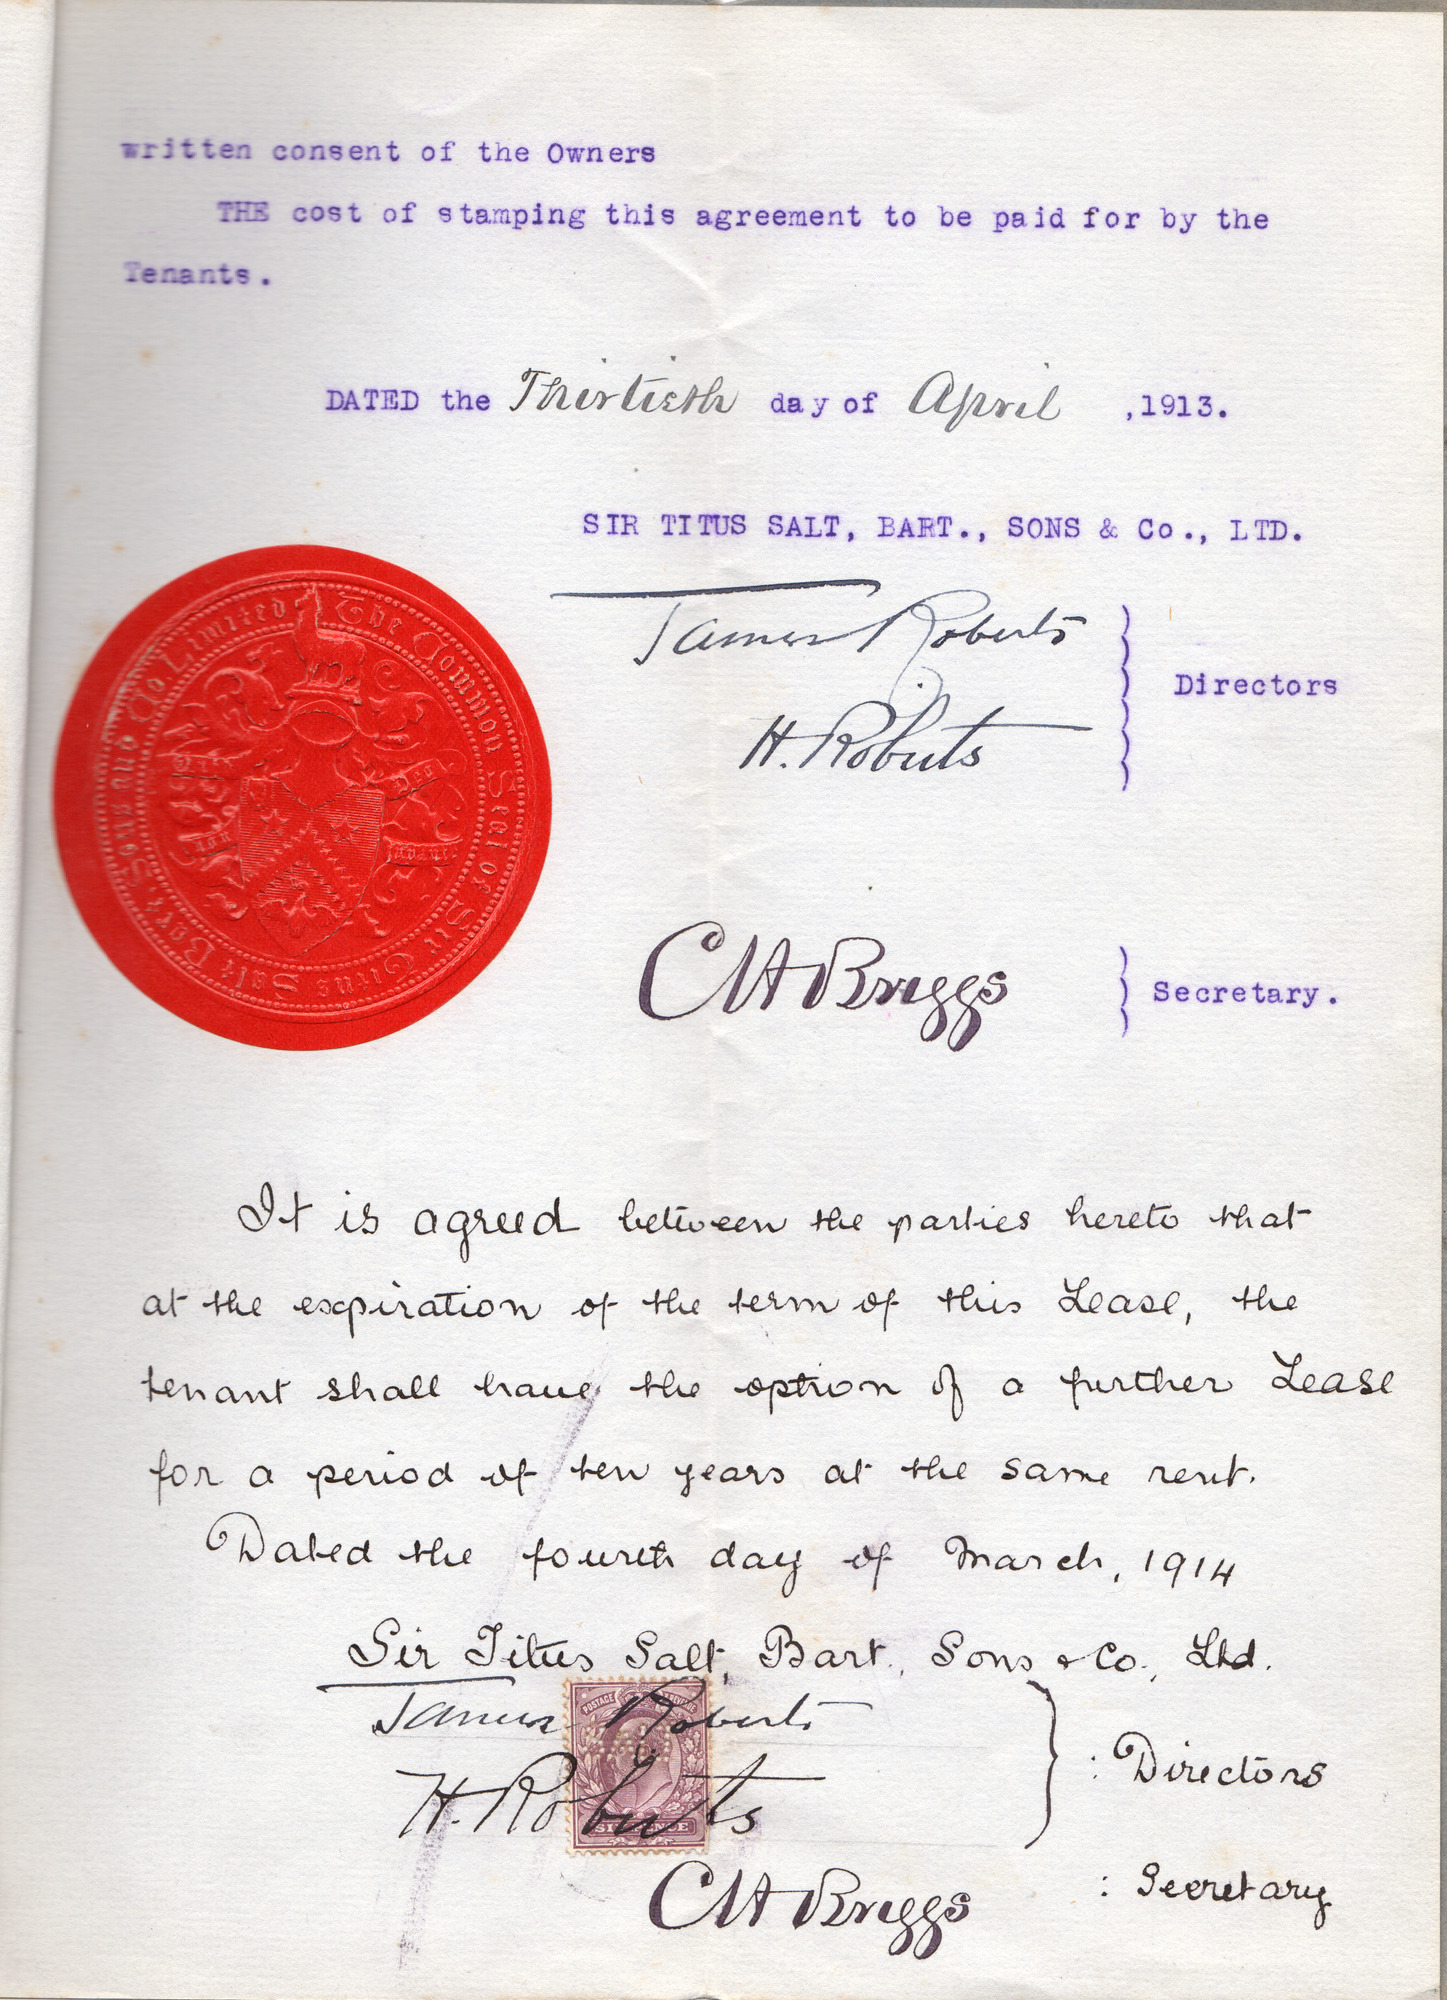 written consent of the Owners
THE cost of stamping this agreement to be paid for by the
Tenants.
DATED the Thirtieth day of April , 1913.
SIR TITUS SALT, BART., SONS & Co., LTD.
James Roberts
H. Roberts
Directors
The Common Seal of Sir Titus Salt Bart. Sons and Co. Limited
CH Briggs
Secretary.
It is agreed between the parties hereto that
at the expiration of the term of this Lease, the
tenant shall have the option of a further Lease
for a period of ten years at the same rent.
Dated the fourth day of March, 1914
Sir Titus Salt, Bart., Sons & Co., Ltd.
James Roberts
H. Roberts
: Directors
POSTAGE REVENUE
SIXPENCE
CH Briggs
: Secretary